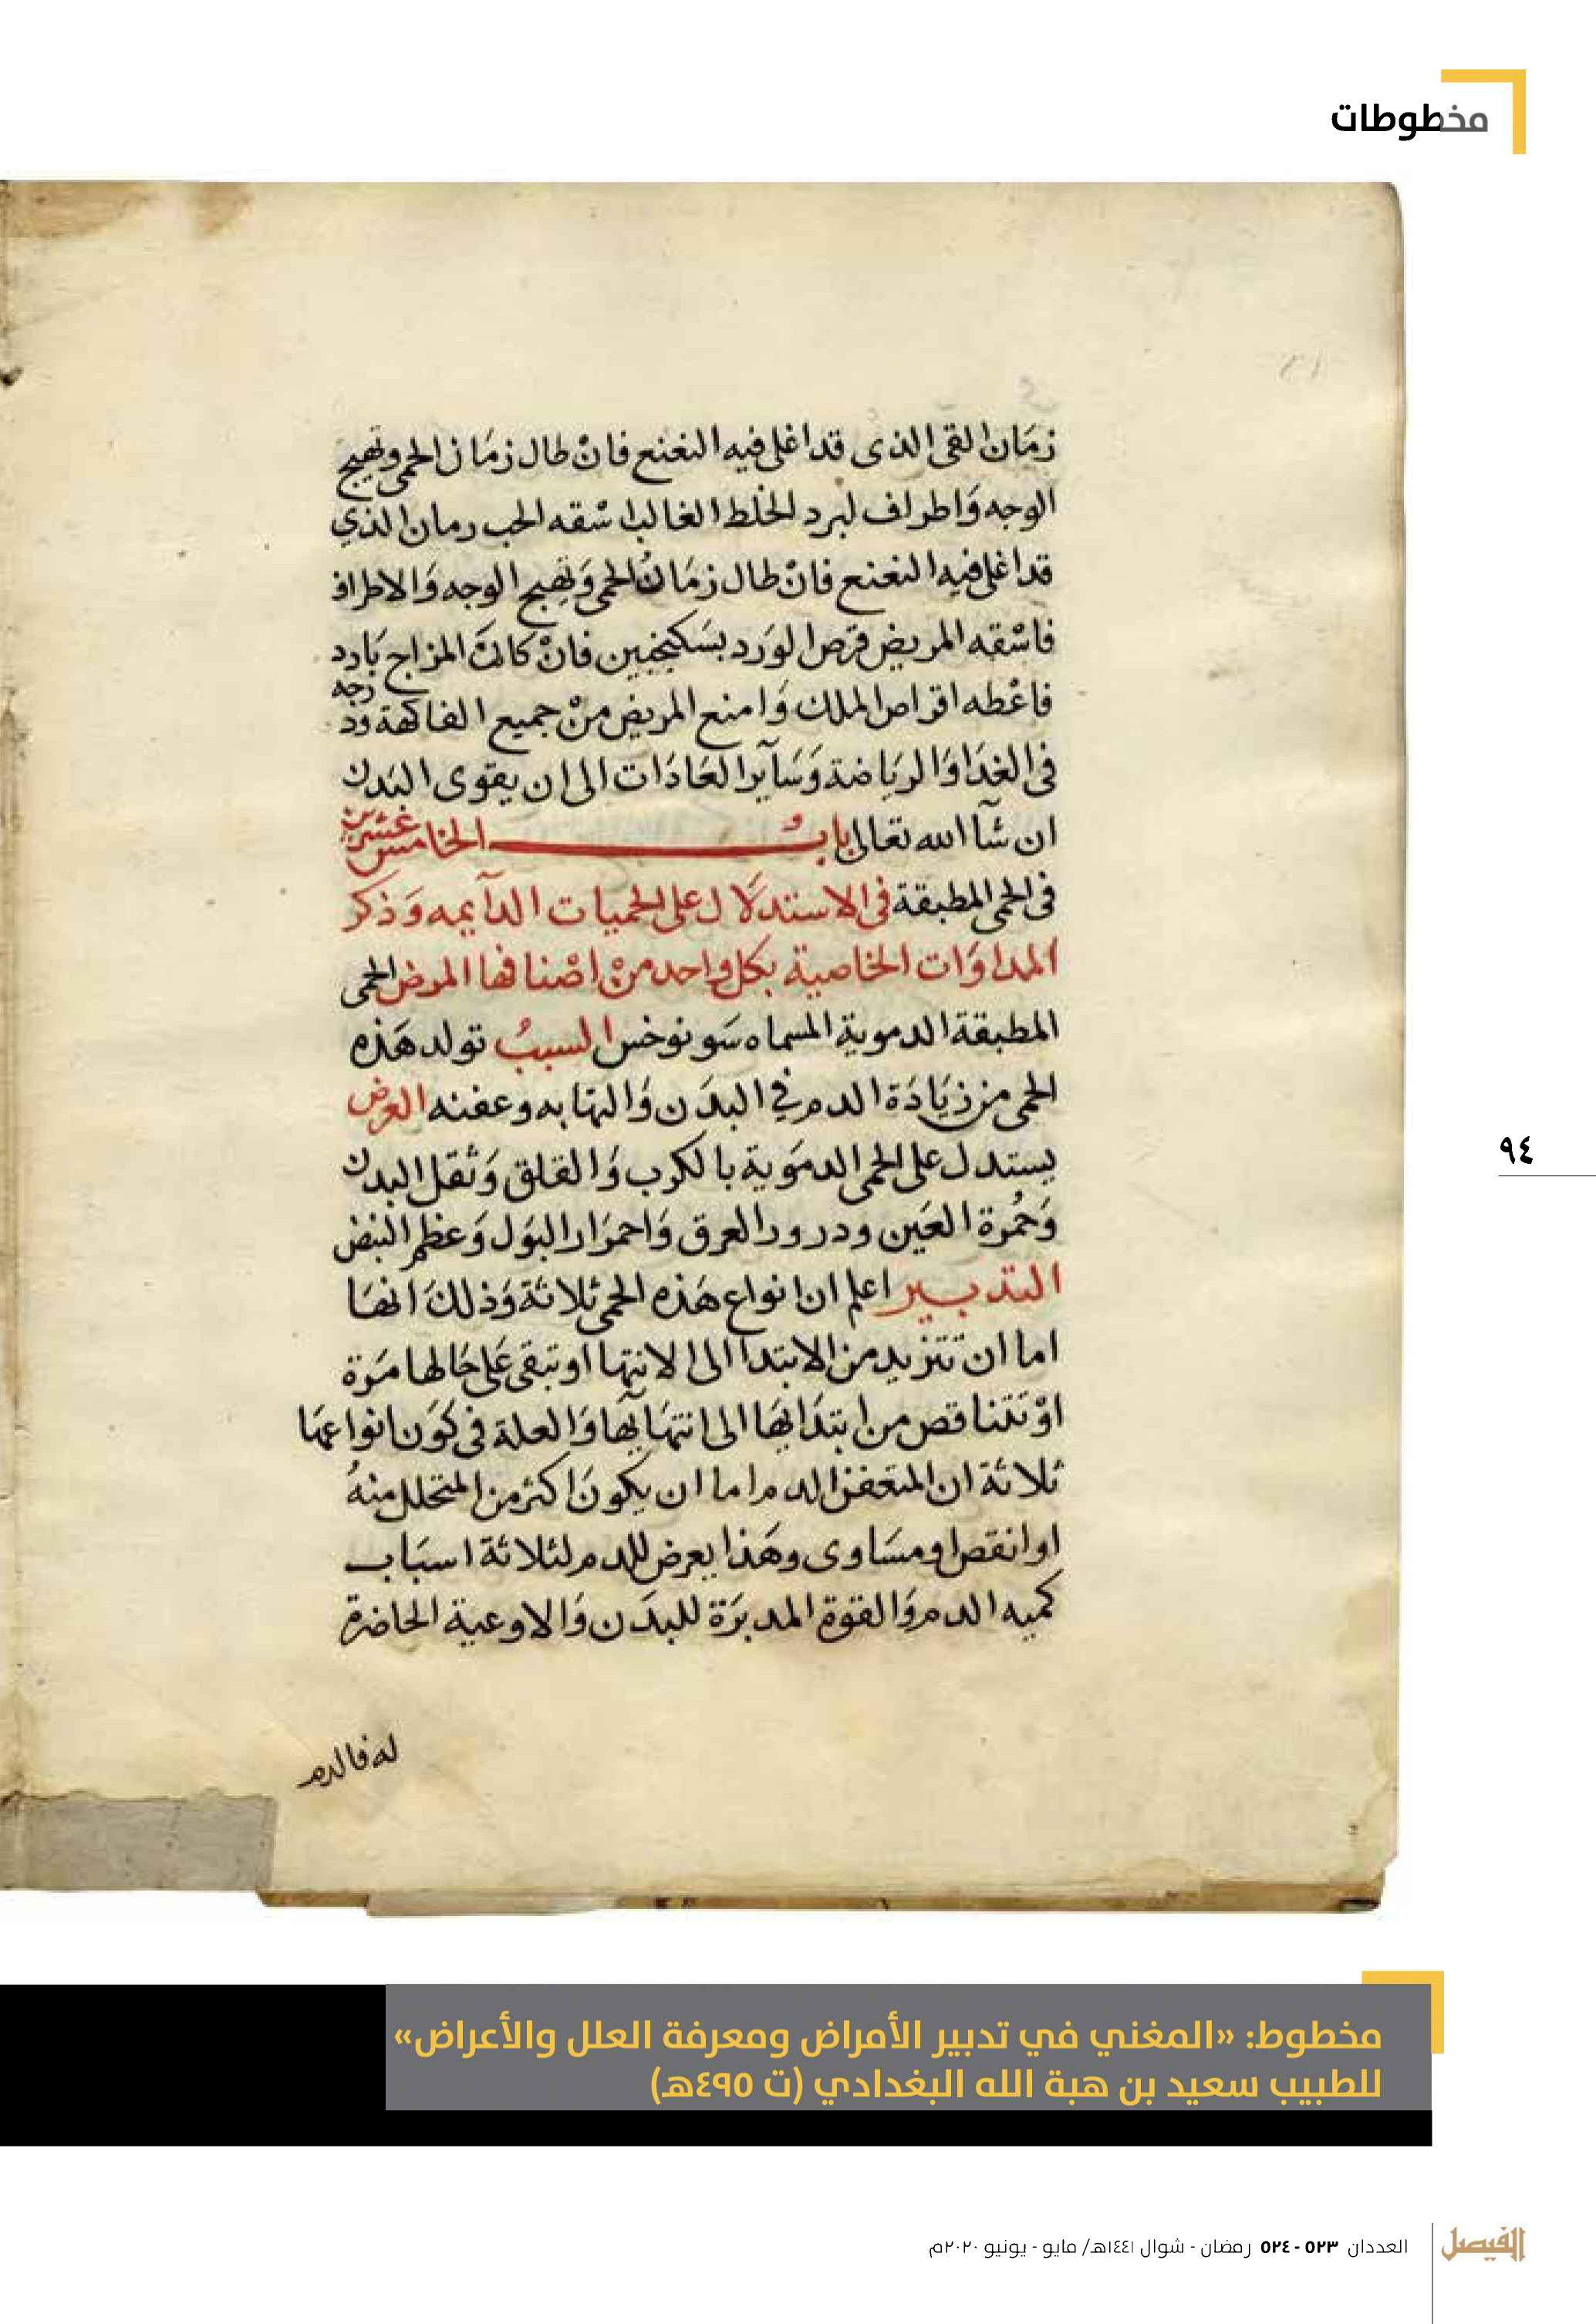 مخطوطات
زمَان القى الذى قد اغلى فيه النعنع فانْ طال زمَان الحمى وتهيج
الوجه وَاطراف لبرد الخلط الغالب اسْقه الحب رمان الذي
قد اغلى فيه النعنع فانْ طال زمَانُ الحمى وَتهيج الوجه وَالاطراف
فاسْقه المريض قرص الوَرد بسَكنجبين فانْ كانتَ المزاج بَارد
فاعْطه اقراص الملك وَامنع المريض منْ جميع الفاكهة ودرجه
فى الغدَا وَالريَاضة وَسَآير العَادَات الى ان يقوى البَدن
ان شآ الله تعالى بابٌ الخامس عشرين
فى الحمى المطبقة فى الاستدلَال على الحميات الدآيمه وَذكر
المداوَات الخاصية بكل واحد منْ اصْنافها المرض الحمى
المطبقة الدموية المسماه سَونوخس السببُ تولد هَذه
الحمى من زيَادَة الدم في البدَن وَالتهابه وعفنه العرض
يستدل على الحمى الدموَية بالكرب وَالقلق وَثقل البدن
وَحُمرة العَين ودرور العرق وَاحمرَار البَول وَعظم النبض
التدبير اعلم ان انواع هَذه الحمى ثلاثة وَذلكَ انهَا
اما ان تتزيد من الابتدا الى الانتها او تبقى عَلى حَالها مَرة
اوْ تتناقص من ابتدَايهَا الى انتهَايهَا وَالعلة فى كوَن انواعهَا
ثلاثة ان المتعفن الدم اما ان يكونَ اكثر من المتحلل منهُ
او انقص او مسَاوى وهَذا يعرض للدم لثلاثة اسبَاب
كميه الدم وَالقوة المدبرَة للبدَن وَالاوعية الحاضرة
له فالدم
٩٤
مخطوط: «المغني في تدبير الأمراض ومعرفة العلل والأعراض»
للطبيب سعيد بن هبة الله البغدادي (ت ٤٩٥هـ)
الفيصل
العددان ٥٢٣ - ٥٢٤ رمضان - شوال ١٤٤١هـ/ مايو - يونيو ٢٠٢٠م